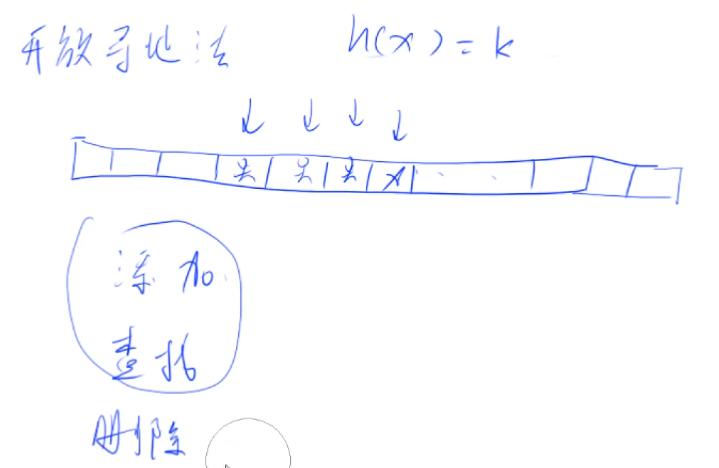 开放寻址法 h(x) = k
吴 吴 吴 x
添加
查找
删除